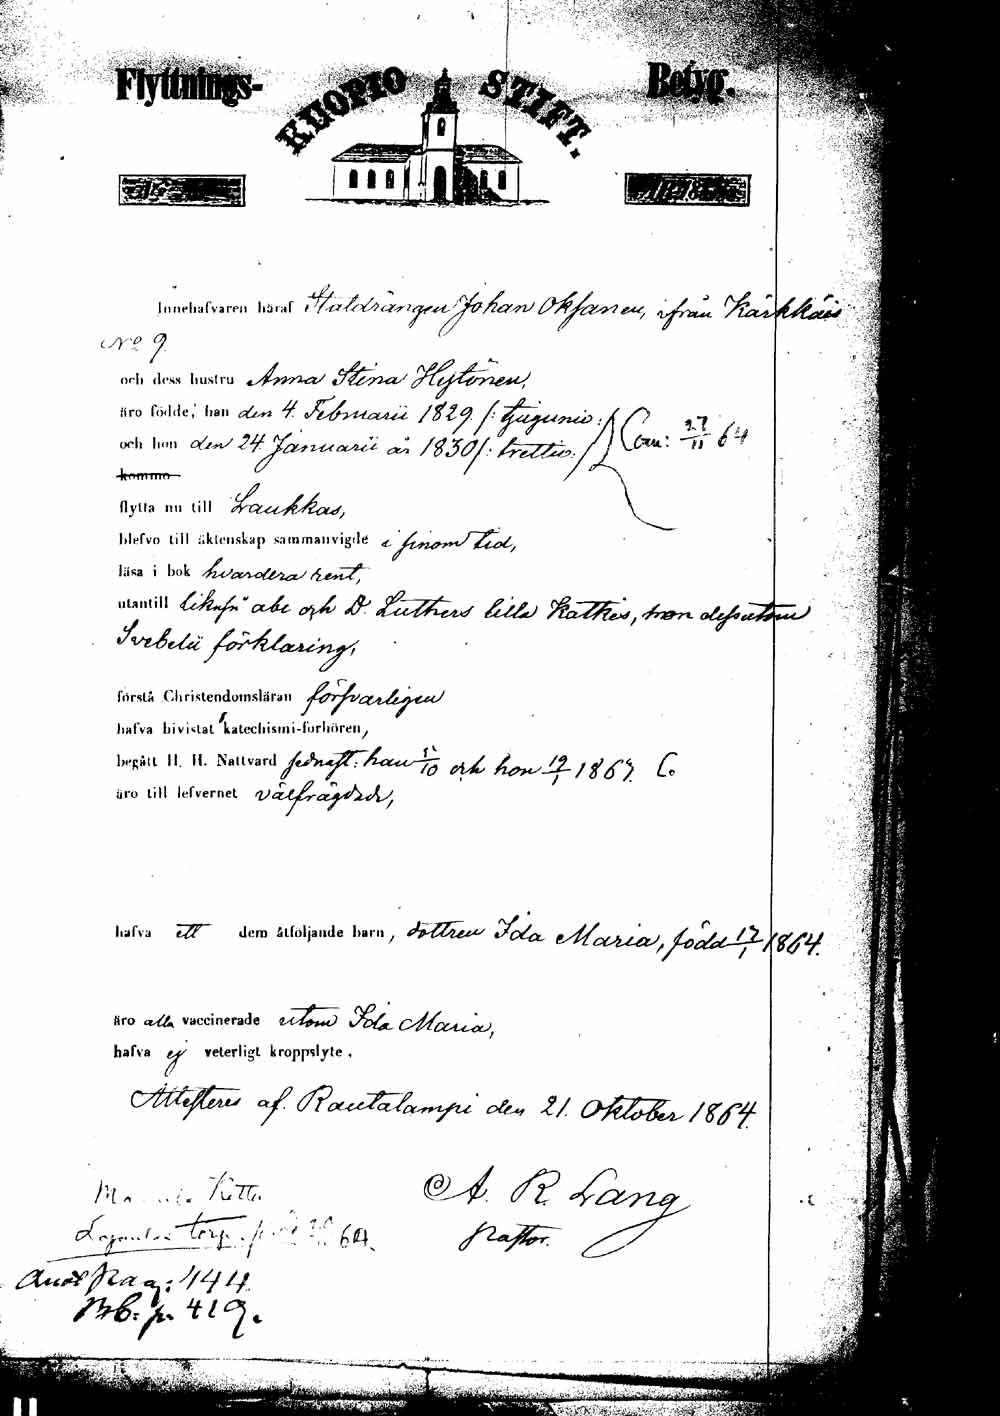 Flyttnings- KUOPIO STIFT. Betyg.
Innehafvaren häraf Staldrängen Johan Oksanen, ifrån Kärkkäis
No 9.
och dess hustru Anna Stina Hytönen,
äro födde, han den 4. Februarii 1829. /: tjugunio :/
och hon den 24. Januarii år 1830 /: trettio :/ Com: 27/11 64
kommo
flytta nu till Laukkas,
blefvo till äktenskap sammanvigde i sinom tid,
läsa i bok hvardera rent,
utantill likaså abc och D. Luthers lilla Katkes, han dessutom
Svebelii förklaring,
förstå Christendomsläran försvarligen
hafva bivistat katechismi-förhören,
begått H. H. Nattvard senast: han /10 och hon 19/1 1864. C.
äro till lefvernet välfrägdade,
hafva ett dem åtföljande barn, dottren Ida Maria, född 17/1 1864.
äro alla vaccinerade utom Ida Maria,
hafva ej veterligt kroppslyte.
Attesteres af. Rautalampi den 21. Oktober 1864.
A. R. Lang
Pastor.
torp 64.
Pag: 444.
Hb. p. 419.